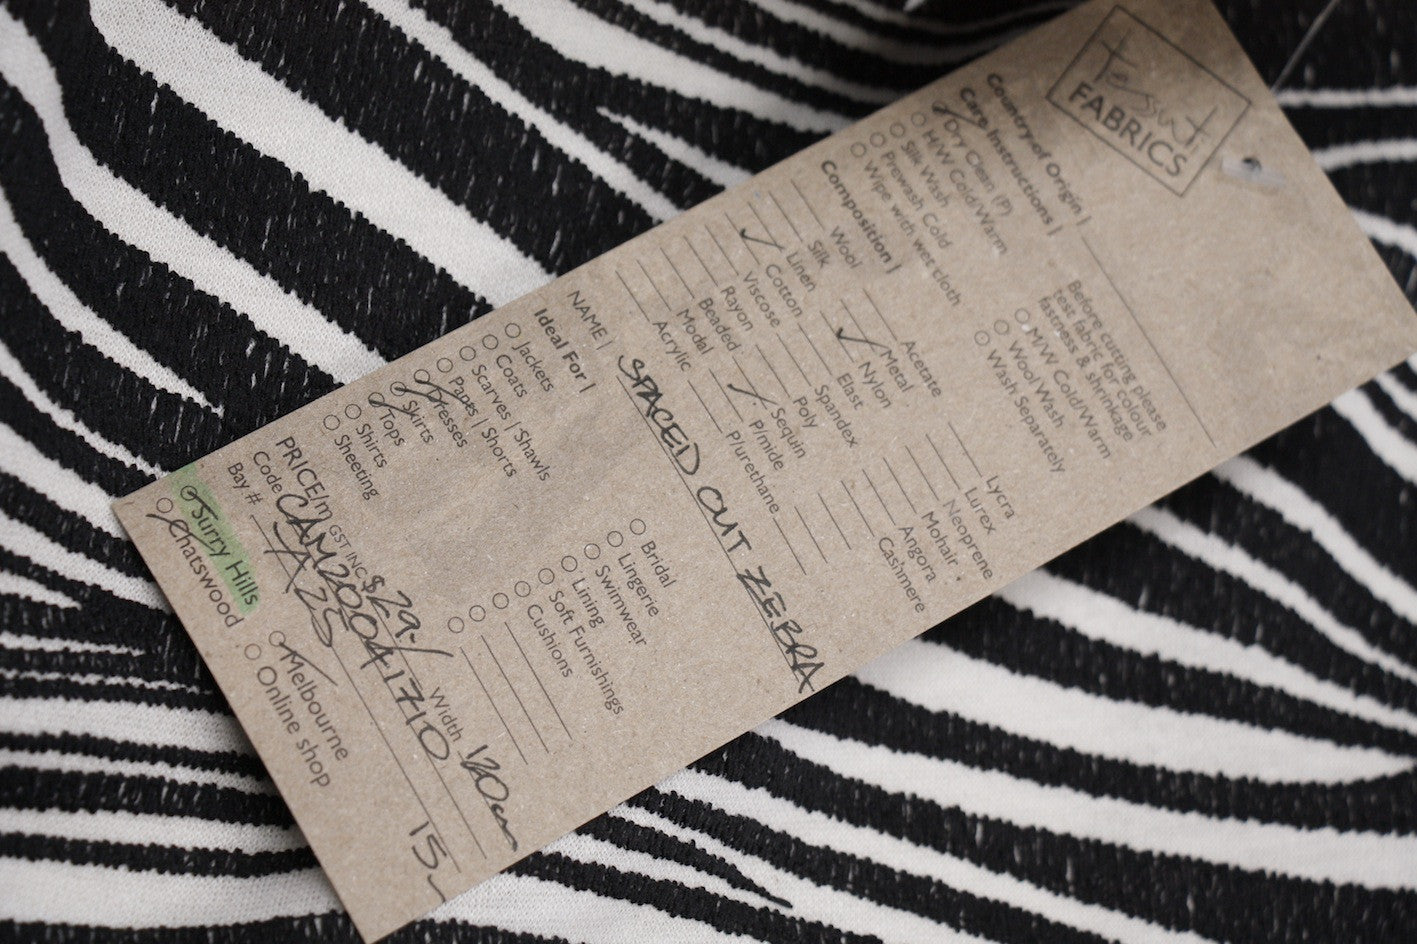 Tessuti
FABRICS
Country of Origin |
Care Instructions |
Dry Clean (P)
H/W Cold/Warm
Silk Wash
Prewash Cold
Wipe with wet cloth
Before cutting please
test fabric for colour
fastness & shrinkage
M/W Cold/Warm
Wool Wash
Wash Separately
Composition |
Wool
Silk
Linen
Cotton
Viscose
Rayon
Beaded
Modal
Acrylic
Acetate
Metal
Nylon
Elast
Spandex
Poly
Sequin
P/mide
P/urethane
Lycra
Lurex
Neoprene
Mohair
Angora
Cashmere
NAME | SPACED OUT ZEBRA
Ideal For |
Jackets
Coats
Scarves | Shawls
Pants | Shorts
Dresses
Skirts
Tops
Shirts
Sheeting
Bridal
Lingerie
Swimwear
Lining
Soft Furnishings
Cushions
PRICE/m GST INC $29-/ Width 120cm
Code CAM20041710 15-
Bay #
Surry Hills
Chatswood
Melbourne
Online shop